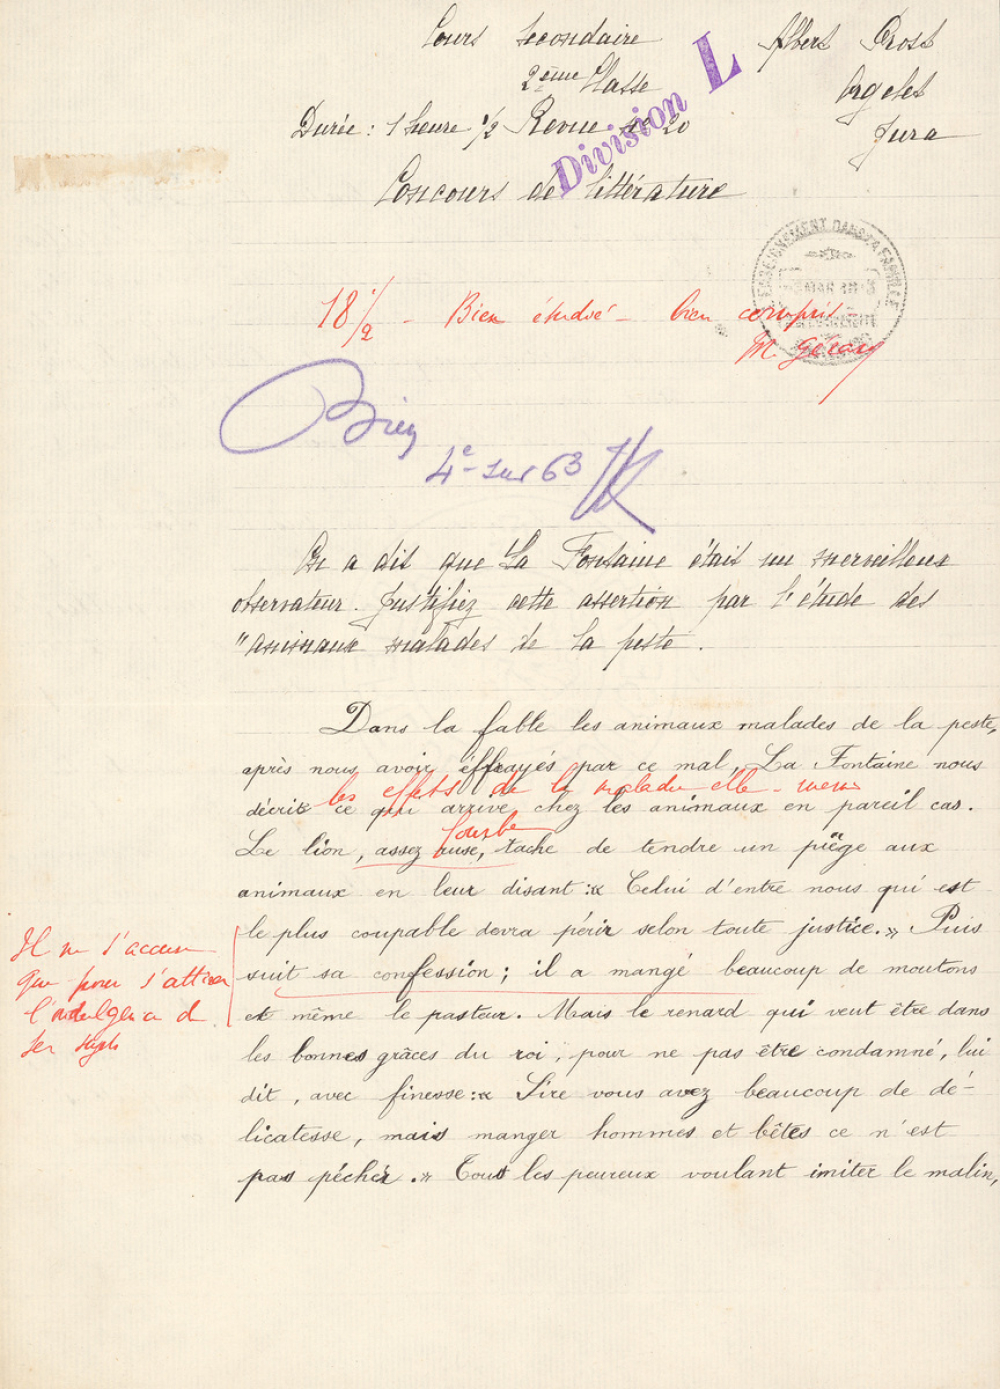 Cours Secondaire
2ème Classe
Durée : 1 heure 1/2 Revue N° 20
Albert Prost
Orgelet
Jura
Division L
Concours de littérature
ENSEIGNEMENT DANS LA FAMILLE
18 1/2 - Bien étudié - bien compris -
M. Gérard
Bien
4e sur 63
On a dit que La Fontaine était un merveilleux
observateur. Justifiez cette assertion par l'étude des
"animaux malades de la peste.
Dans la fable les animaux malades de la peste,
après nous avoir éffrayés par ce mal, La Fontaine nous
les effets de la maladie elle-même
décrit ce qui arrive chez les animaux en pareil cas.
fourbe
Le lion, assez rusé, tache de tendre un piège aux
animaux en leur disant : « Celui d'entre nous qui est
le plus coupable devra périr selon toute justice. » Puis
suit sa confession ; il a mangé beaucoup de moutons
et même le pasteur. Mais le renard qui veut être dans
les bonnes grâces du roi, pour ne pas être condamné, lui
dit, avec finesse : « Sire vous avez beaucoup de dé-
licatesse, mais manger hommes et bêtes ce n'est
pas péché. » Tous les peureux voulant imiter le malin,
Il ne s'accuse
que pour s'attirer
l'indulgence de
ses sujets